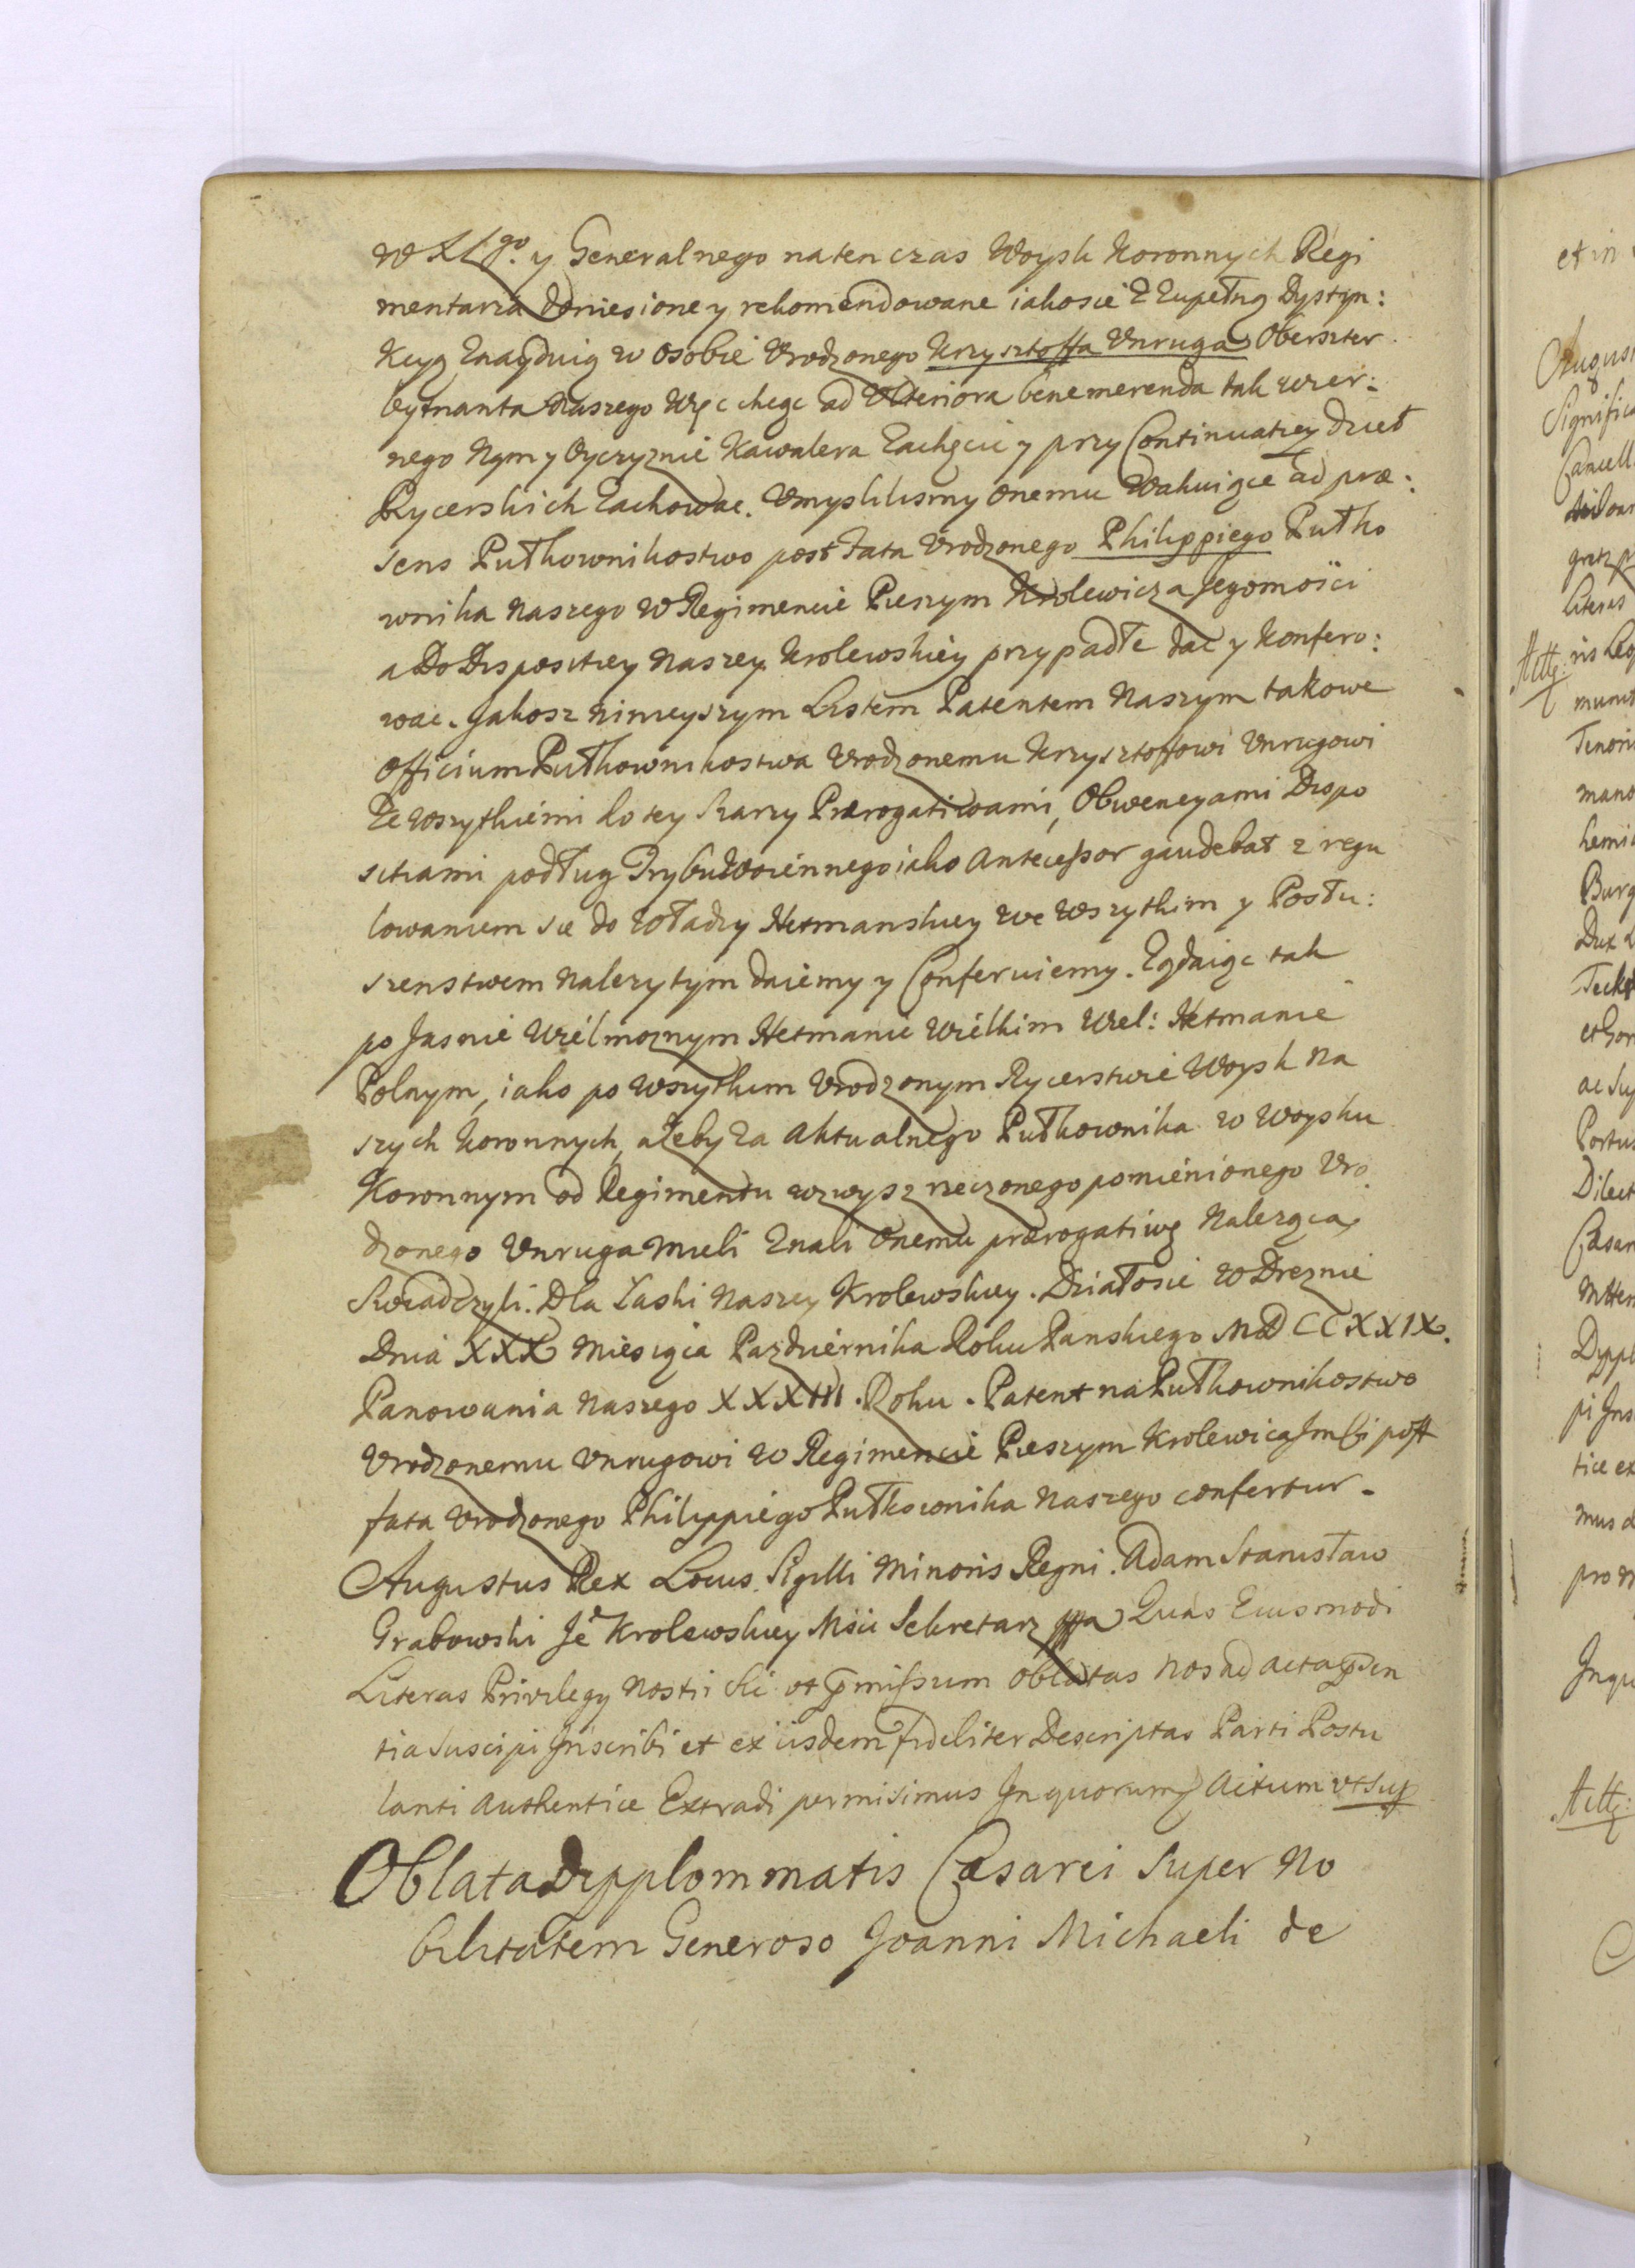 W Xgo. y Generalnego naten czas Woysk Koronnych Regi
mentarza doniesione y rekomendowane iakosie z zupełną Dystyn:
kcyą znayduią w osobie Vrodzonego Krzysztoffa Vnruga Oberszter
leytnanta Naszego Więc chcąc ad Vlteriora bene merenda tak wier:
nego Nam y Oyczyznie Kawalera Zachęcic y przy Continuatiey dzieł
Rycerskich Zachowac. Vmyslilismy onemu Wakuiące ad præ:
sens Pułkownikostwo post fata Vrodzonego Philippiego Pułko
wnika Naszego w Regimencie Pieszym Krolewicza Jegomości
a Do Dispositiey Naszey Krolewskiey przypadłe dac y Konfero:
wac. Jakosz ninieyszym Listem Patentem Naszym takowe
Officium Pułkownikostwa Vrodzonemu Krzysztoffowi Vnrugowi
Ze wszytkiemi do tey Szarzy Prærogatiwami, Obwencyami Dispo
sitiami podług Trybu Woiennego iako Antecessor gaudebat z regu
lowaniem sie do Władzy Hetmanskiey we Wszytkim y Posłu:
szenstwem Nalezytym daiemy y Conferuiemy. Ządaiąc tak
po Jasnie Wielmoznym Hetmanie Wielkim Wiel: Hetmanie
Polnym, iako po Wszytkim Vrodzonym Rycerstwie Woysk Na
szych Koronnych, ażeby za Aktualnego Pułkownika w Woysku
Koronnym od Regimentu wzwysz rzeczonego pomienionego Vro
dzonego Vnruga Mieli Znali Onemu prærogatiwę Nalezącą
Swiadczyli. Dla Łaski Naszey Krolewskiey. Działosie w Dreznie
Dnia XXX Miesiąca Pazdziernika Roku Panskiego MDCCXXIX.
Panowania Naszego XXXIII. Roku. Patent na Pułkownikostwo
Vrodzonemu Vnrugowi w Regimencie Pieszym Krolewica Jmci post
fata Vrodzonego Philippiego Pułkownika Naszego confertur.
Augustus Rex Locus Sigilli Minoris Regni. Adam Stanisław
Grabowski Je Krolewskiey Mści Sekretarz Quas Eiusmodi
Literas Privilegy Nostri ut præmissum oblatas Nos ad acta præsen
tia Suscipi Inscribi et ex iisdem fideliter Descriptas Parti Postu
lanti Authentice Extradi permisimus In quorum Actum ut sup
Oblata Dipplommatis Cæsarei Super No
bilitatem Generoso Joanni Michaeli de